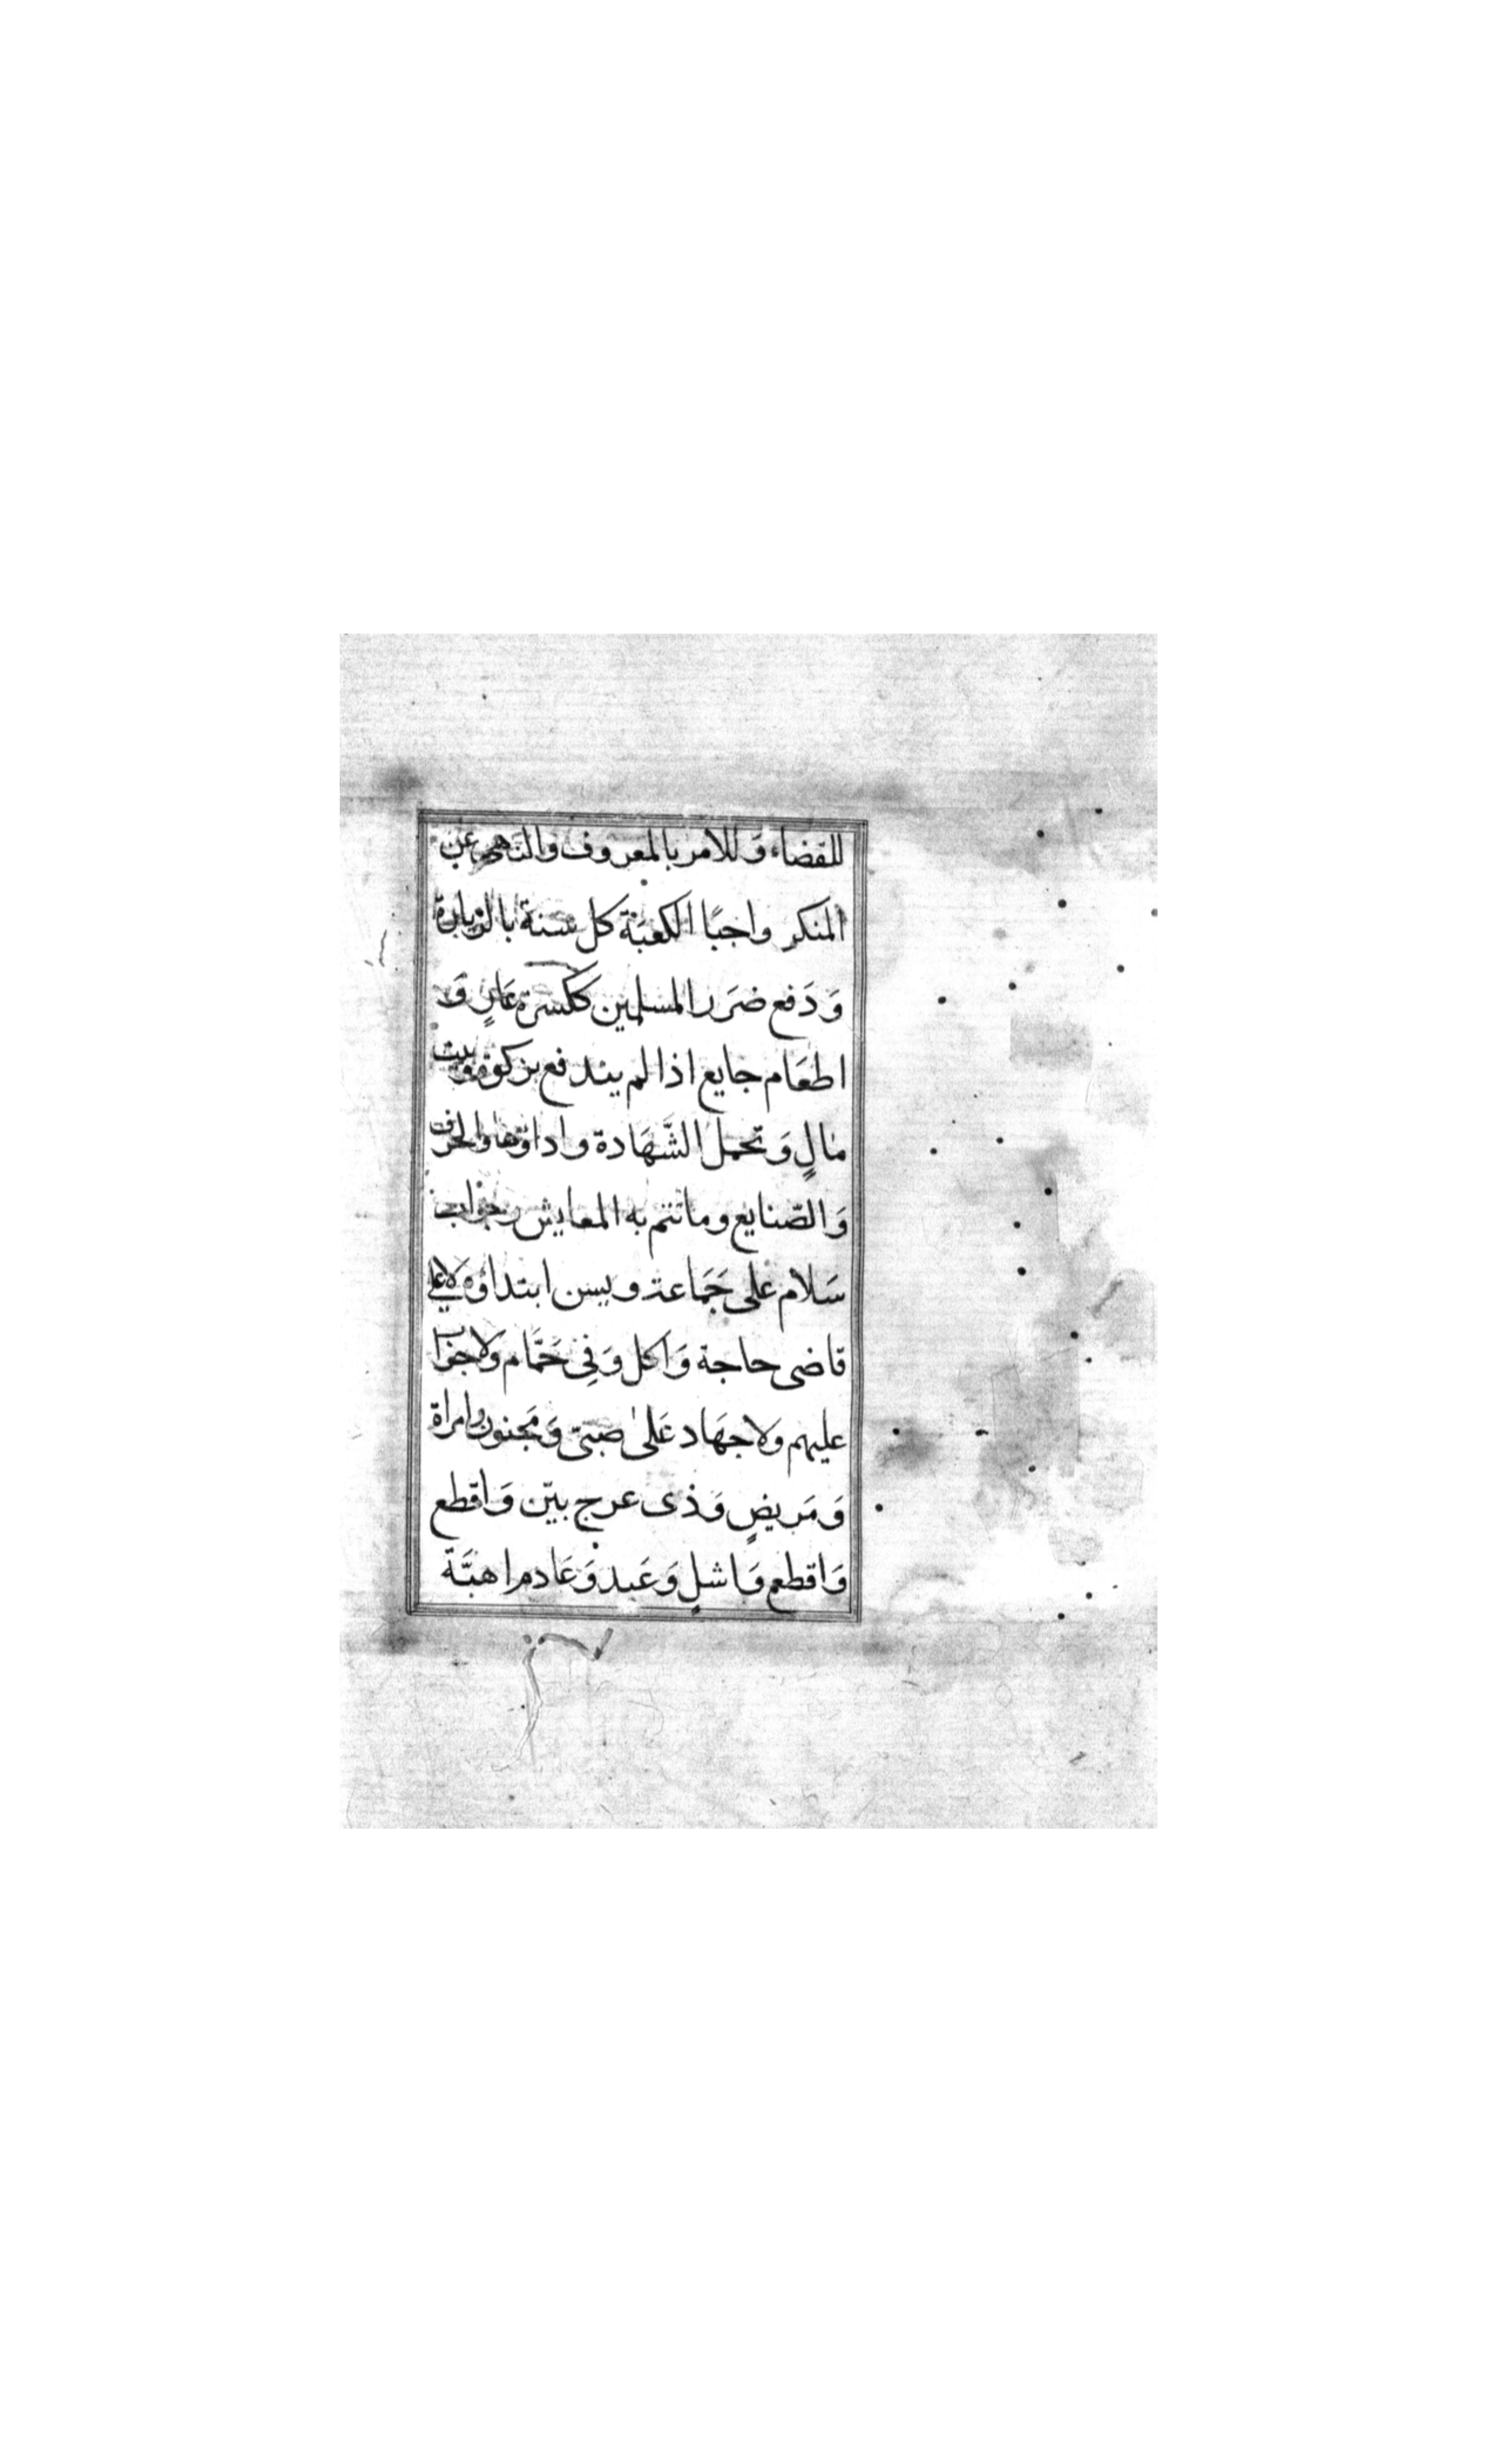 للقضاء وَللامر بالمعروف والنَهى عن
المنكر واجبًا الكعبَة كل سنة بالزيارة
وَدَفع ضَرر المسلمين ككسوة عَارٍ وَ
اطعَام جايع اذا لم يندفع بزكوة وبيت
مالٍ وَتحمل الشَّهَادة واداؤها والحرف
وَالصّنايع وما تتم به المعايش وجواب
سَلام على جَمَاعة ويسن ابتداؤه لا على
قاضى حاجة وَاكل وَفِى حَمَّام وَلا جواب
عليهم وَلا جهَاد عَلىٰ صَبىّ وَمَجنون وامراة
وَمَريضٍ وَذى عرج بيّن وَاقطع
وَاقطع وَاشلٍ وَعَبد وَعَادم اهبَّة